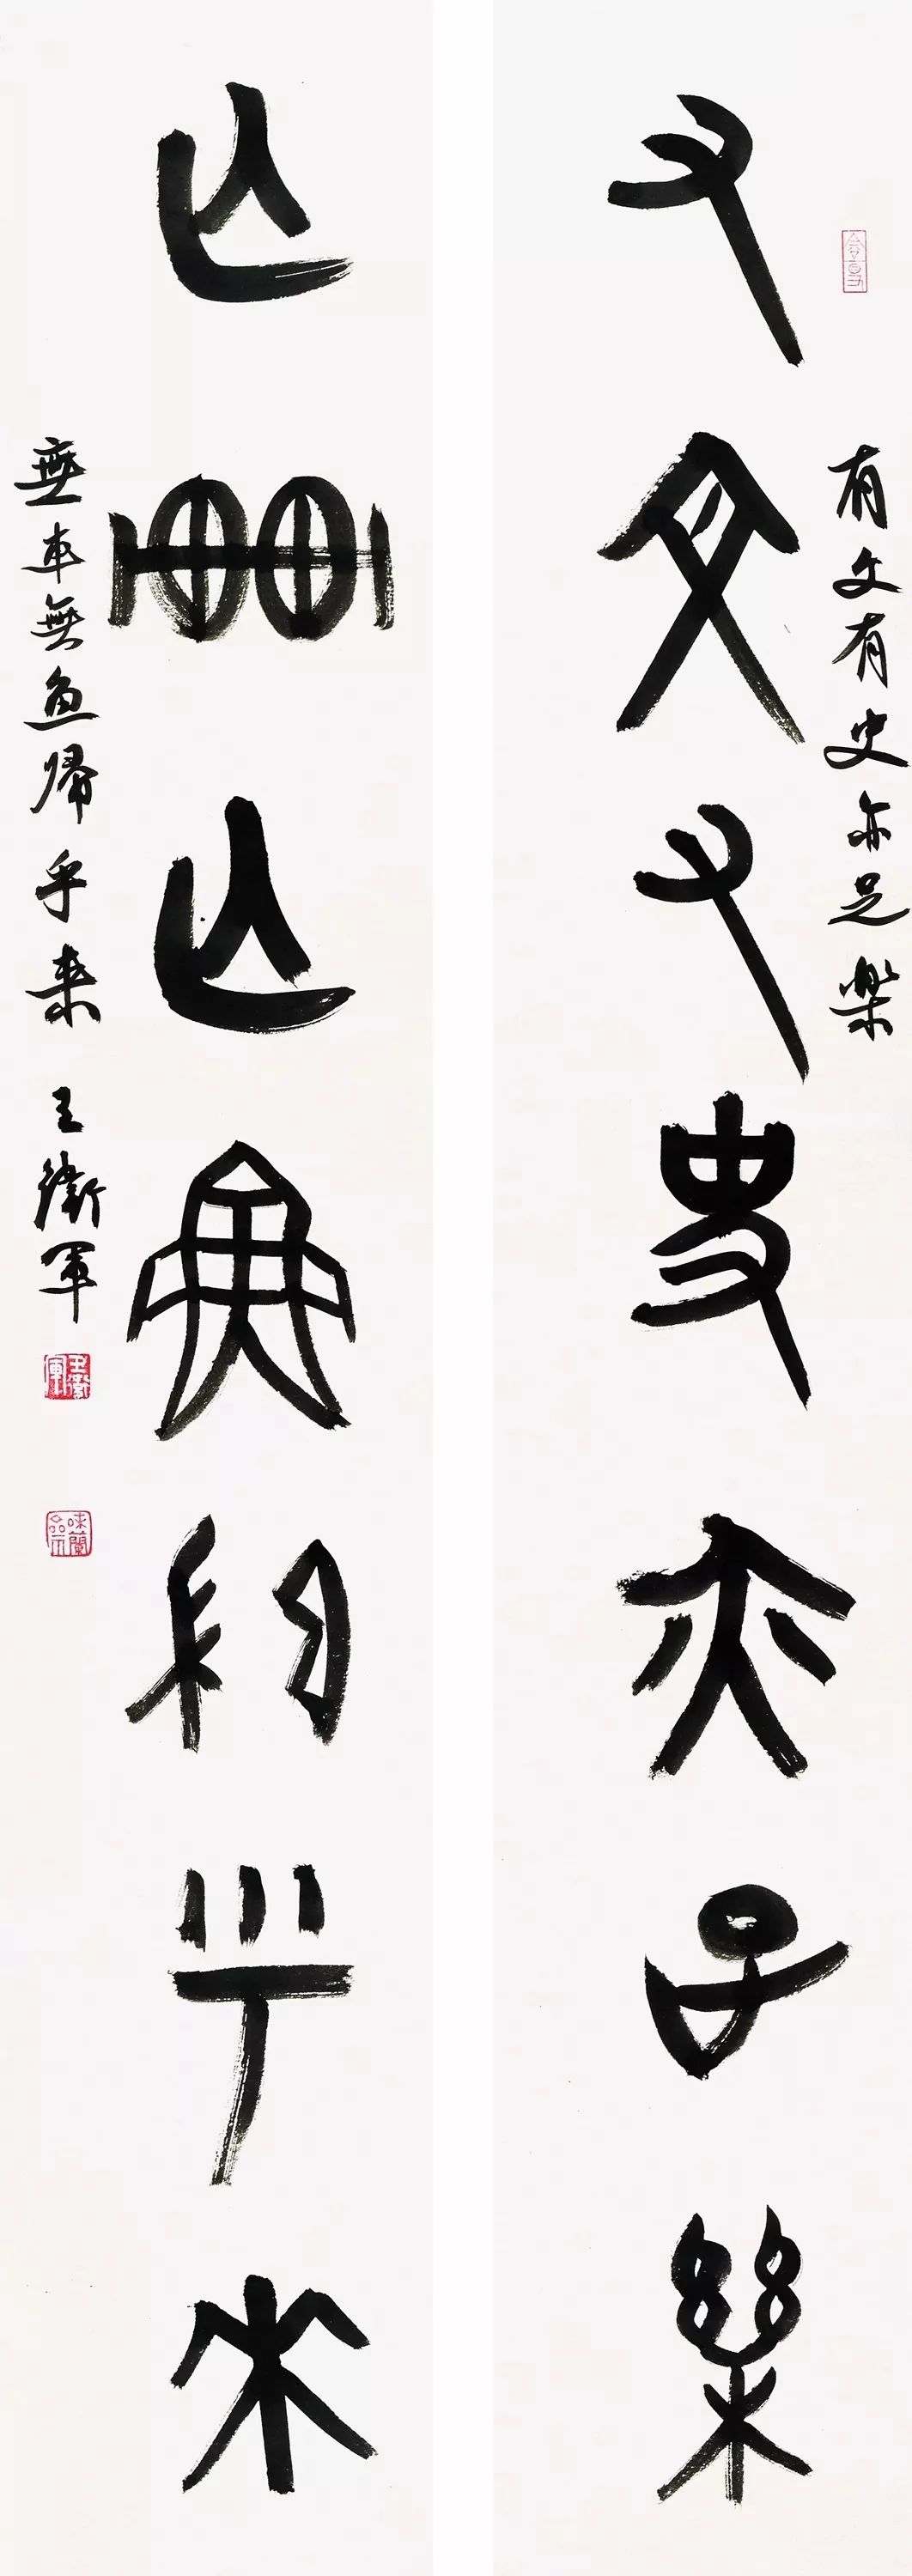 有文有史亦足樂
有文有史亦足樂
亡車亡魚歸乎來
無車無魚歸乎來
王衛軍